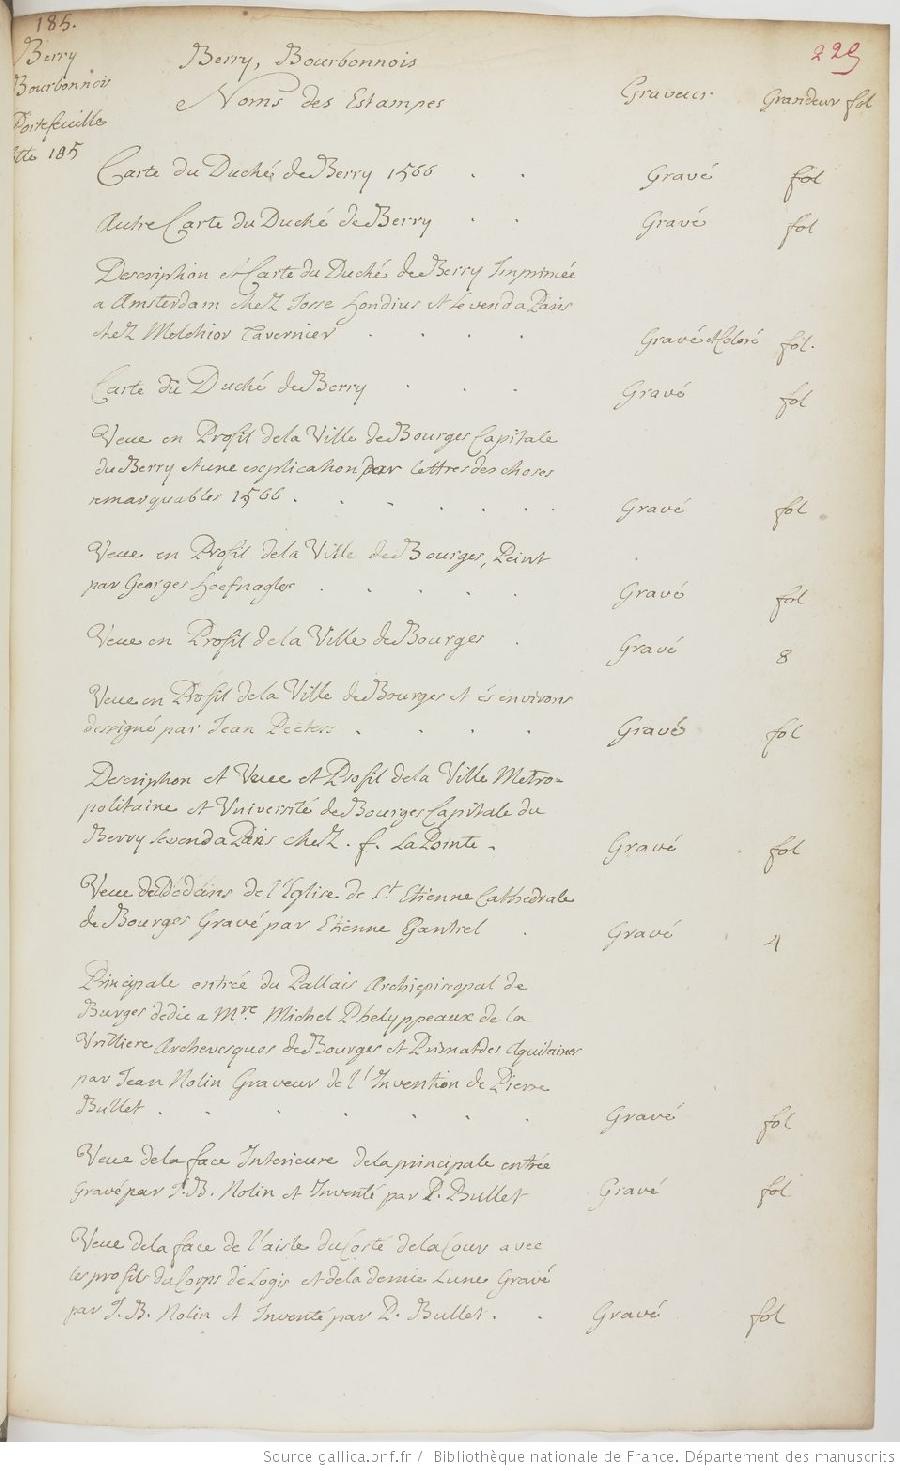 185.
229
Berry
Bourbonnois
Portefeuille
185
Berry, Bourbonnois
Noms des Estampes
Graveur
Grandeur fol
Carte du Duché de Berry 1566 . . Gravé fol
Autre Carte du Duché de Berry . . Gravé fol
Description et Carte du Duché de Berry Imprimée
a Amsterdam chez Josse Hondius et se vend a Paris
chez Melchior Tavernier . . . . Gravé et Coloré fol.
Carte du Duché de Berry . . . Gravé fol
Veue en Profil de la Ville de Bourges Capitale
du Berry et une explication par lettres des choses
remarquables 1566 . . . . . . Gravé fol
Veue en Profil de la Ville de Bourges, Peint
par Georges Hoefnagles . . . . . Gravé fol
Veue en Profil de la Ville de Bourges . Gravé 8
Veue en Profil de la Ville de Bourges et és environs
dessigné par Jean Peeters . . . . Gravé fol
Description et Veue et Profil de la Ville Metro-
politaine et Université de Bourges Capitale du
Berry se vend a Paris chez . f. La Pointe . Gravé fol
Veue de Dedans de l'Eglise de St Etienne Cathedrale
de Bourges Gravé par Etienne Gantrel . Gravé 4
Principale entrée du Pallais Archiepiscopal de
Burges dedie a Mre. Michel Phelyppeaux de la
Vrilliere Archevesques de Bourges et Primat des Aquitaines
par Jean Nolin Graveur de l'Invention de Pierre
Bullet . . . . . . Gravé fol
Veue de la face Interieure de la principale entrée
Gravé par J. B. Nolin et Inventé par P. Bullet Gravé fol
Veue de la face de l'aisle du Costé de la Cour avec
les profils du Corps de Logis et de la demie Lune Gravé
par J. B. Nolin et Inventé par P. Bullet . . Gravé fol
Source gallica.bnf.fr / Bibliothèque nationale de France. Département des manuscrits